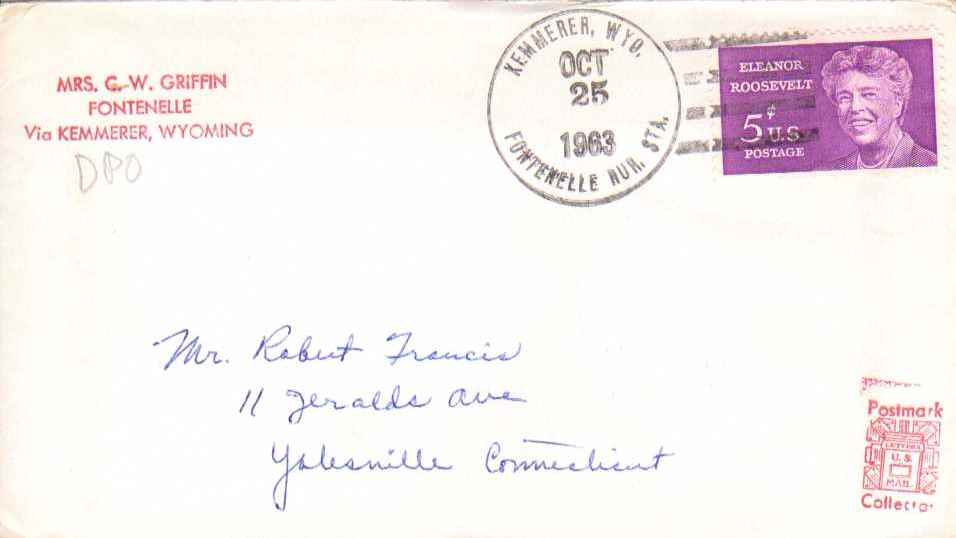 MRS. C. W. GRIFFIN
FONTENELLE
Via KEMMERER, WYOMING
DPO
KEMMERER, WYO.
OCT
25
1963
FONTENELLE RUR. STA.
ELEANOR
ROOSEVELT
5¢ U.S.
POSTAGE
Mr. Robert Francis
11 Geralds Ave
Yalesville Connecticut
Postmark
LETTERS
U.S.
MAIL
Collector